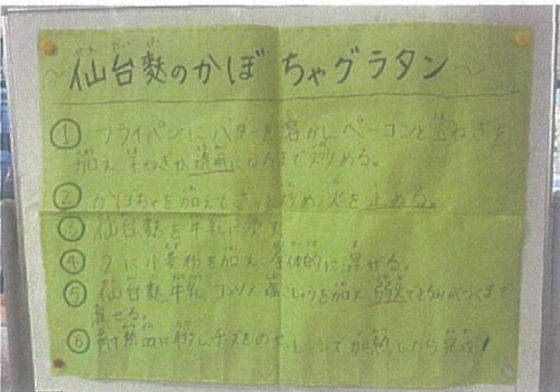 ～仙台麩のかぼちゃグラタン～
① フライパンにバターを溶かし、ベーコンと玉ねぎを
加え玉ねぎが透明になるまで炒める。
② かぼちゃを加えてさっと炒め、火を止める。
③ 仙台麩を牛乳に浸す
④ 2に小麦粉を加え、全体的に混ぜる。
⑤ 仙台麩、牛乳、コンソメ、塩こしょうを加え、弱火でとろみがつくまで
混ぜる。
⑥ 耐熱皿に移し、チーズをのせ、レンジで加熱したら完成!